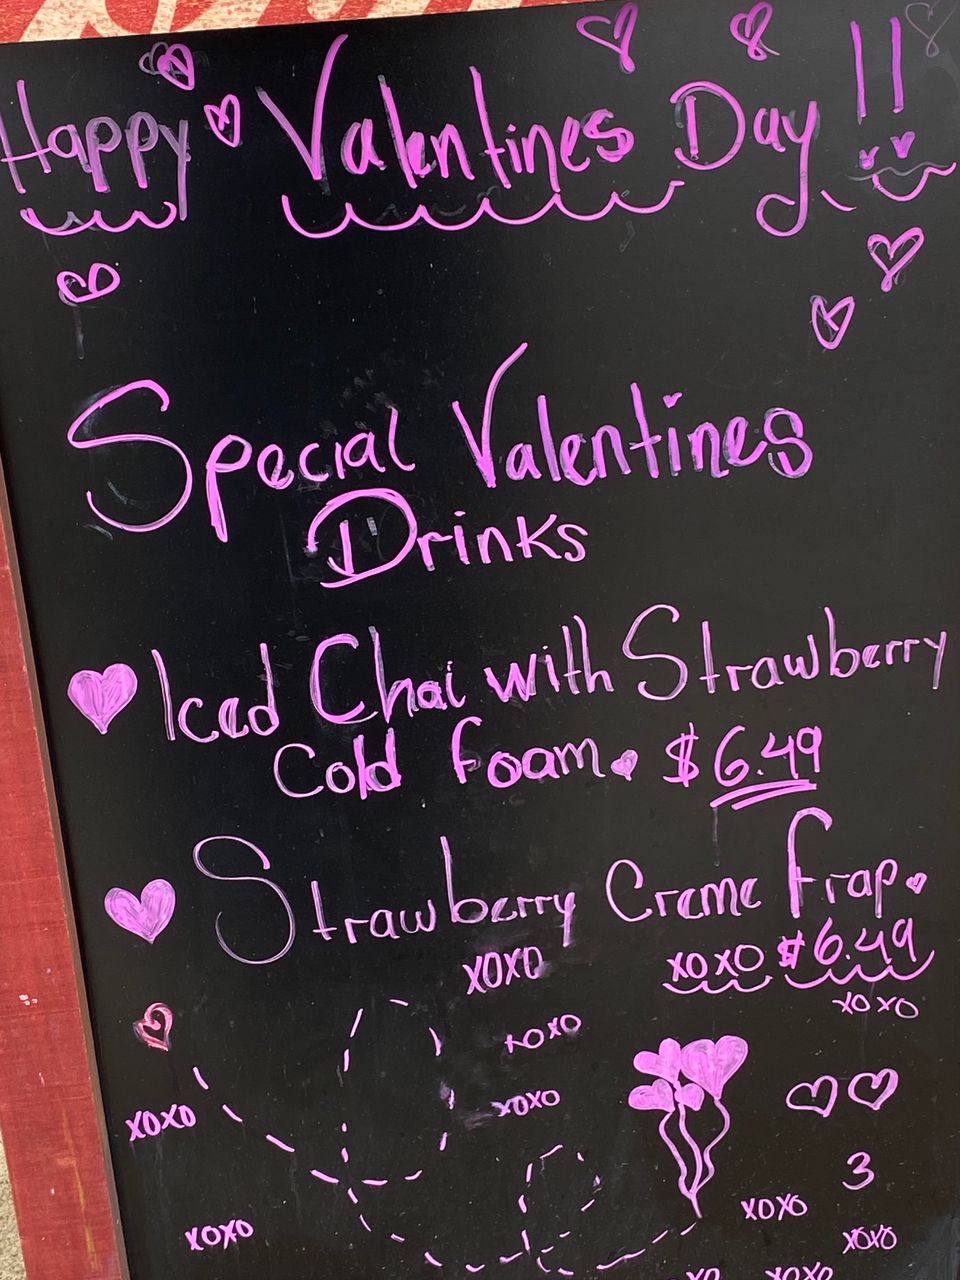 Happy Valentines Day !!
Special Valentines
Drinks
Iced Chai with Strawberry
Cold foam. $6.49
Strawberry Creme Frap.
XOXO XOXO $6.49
XOXO
XOXO
XOXO
XOXO
3
XOXO
XOXO XOXO
XO XOXO